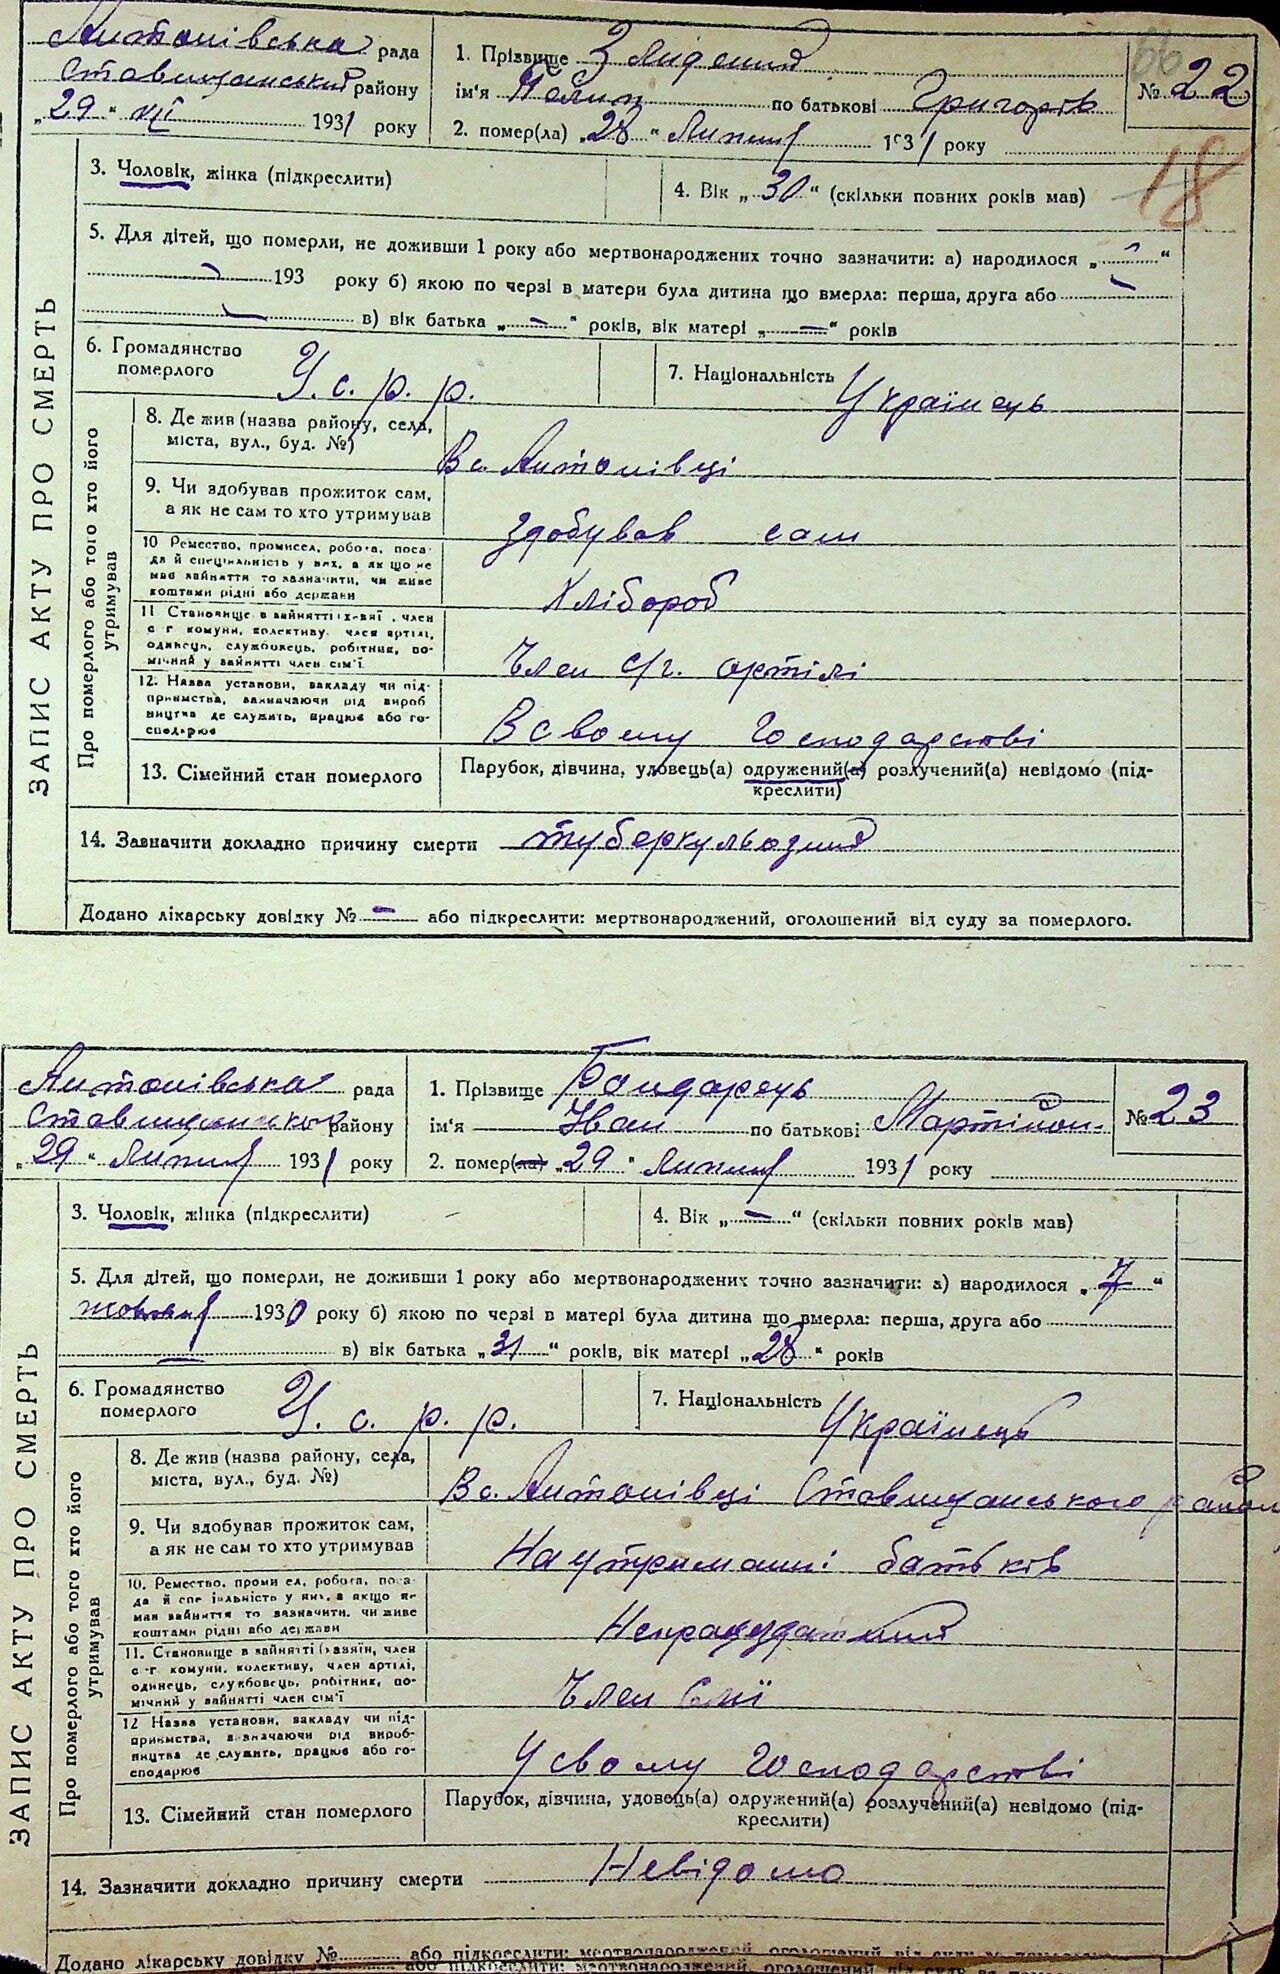 Антонівська рада
Ставищанський району
„29“ VII 1931 року
1. Прізвище Злиденний
ім'я по батькові Григорів
2. помер(ла) „28“ Липня 1931 року
66
№ 22
18
ЗАПИС АКТУ ПРО СМЕРТЬ
3. Чоловік, жінка (підкреслити)
4. Вік „30“ (скільки повних років мав)
5. Для дітей, що померли, не доживши 1 року або мертвонароджених точно зазначити: а) народилося „-“
- 193 року б) якою по черзі в матери була дитина що вмерла: перша, друга або -
- в) вік батька „-“ років, вік матері „-“ років
6. Громадянство
померлого
У.с.р.р.
7. Національність Українець
Про померлого або того хто його
утримував
8. Де жив (назва району, села,
міста, вул., буд. №)
В с. Антонівці
9. Чи здобував прожиток сам,
а як не сам то хто утримував
здобував сам
10 Ремество, промисел, робота, поса-
да й спеціяльність у них, а як що не
мав зайняття то зазначити, чи живе
коштами рідні або держави
Хлібороб
11 Становище в зайнятті (хазяї, член
с г комуни, колективу, член артілі,
одинець, службовець, робітник, по-
мічний у зайнятті член сім'ї
Член с/г. артілі
12. Назва установи, закладу чи під-
приємства, зазначаючи рід вироб
ництва де служить, працює або го-
сподарює
В свому Господарстві
13. Сімейний стан померлого
Парубок, дівчина, удовець(а) одружений(а) розлучений(а) невідомо (під-
креслити)
14. Зазначити докладно причину смерти туберкульозний
Додано лікарську довідку № - або підкреслити: мертвонароджений, оголошений від суду за померлого.
Антонівська рада
Ставищанського району
„29“ Липня 1931 року
1. Прізвище Бондарець
ім'я Іван по батькові Мартінон.
2. помер(ла) „29“ Липня 1931 року
№ 23
ЗАПИС АКТУ ПРО СМЕРТЬ
3. Чоловік, жінка (підкреслити)
4. Вік „-“ (скільки повних років мав)
5. Для дітей, що померли, не доживши 1 року або мертвонароджених точно зазначити: а) народилося „7“
жовтня 1930 року б) якою по черзі в матері була дитина що вмерла: перша, друга або
- в) вік батька „31“ років, вік матері „28“ років
6. Громадянство
померлого
У.с.р.р.
7. Національність Українець
Про померлого або того хто його
утримував
8. Де жив (назва району, села,
міста, вул., буд. №)
В с. Антонівці Ставищанського району
9. Чи здобував прожиток сам,
а як не сам то хто утримував
На утриманні батьків
10. Ремество, промисел, робота, поса-
да й спеціяльність у них, а якщо не
мав зайняття то зазначити, чи живе
коштами рідні або держави
Непрацездатний
11. Становище в зайнятті (хазяїн, член
с-г комуни, колективу, член артілі,
одинець, службовець, робітник, по-
мічний у зайнятті член сім'ї
Член сімї
12 Назва установи, закладу чи під-
приємства, зазначаючи рід вироб-
ництва де служить, працює або го-
сподарює
У свому Господарстві
13. Сімейний стан померлого
Парубок, дівчина, удовець(а) одружений(а) розлучений(а) невідомо (під-
креслити)
14. Зазначити докладно причину смерти Невідомо
Додано лікарську довідку № або підкреслити: мертвонароджений, оголошений від суду за